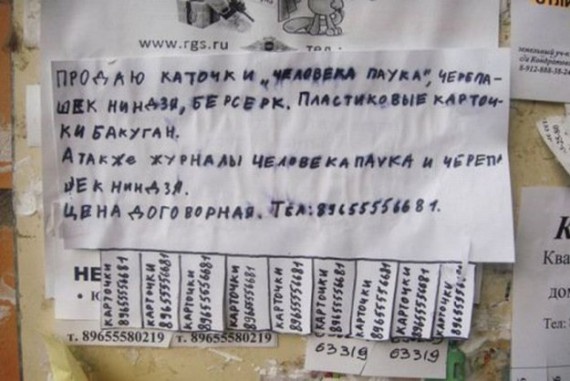 www.rgs.ru
тел.:
ПРОДАЮ КАТОЧКИ „ЧЕЛОВЕКА ПАУКА", ЧЕРЕПА-
ШЕК НИНДЗЯ, БЕРСЕРК. ПЛАСТИКОВЫЕ КАРТОЧ-
КИ БАКУГАН.
А ТАКЖЕ ЖУРНАЛЫ ЧЕЛОВЕКА ПАУКА И ЧЕРЕПА
ШЕК НИНДЗЯ.
ЦЕНА ДОГОВОРНАЯ. ТЕЛ: 89655556681.
КАРТОЧКИ 89655556681
КАРТОЧКИ 89655556681
КАРТОЧКИ 89655556681
КАРТОЧКИ 89655556681
КАРТОЧКИ 89655556681
КАРТОЧКИ 89655556681
КАРТОЧКИ 89655556681
КАРТОЧКИ 89655556681
КАРТОЧКИ 89655556681
НЕ
т. 89655580219 т. 89655580219
63319 63319
К
Ква
дом
Тел: